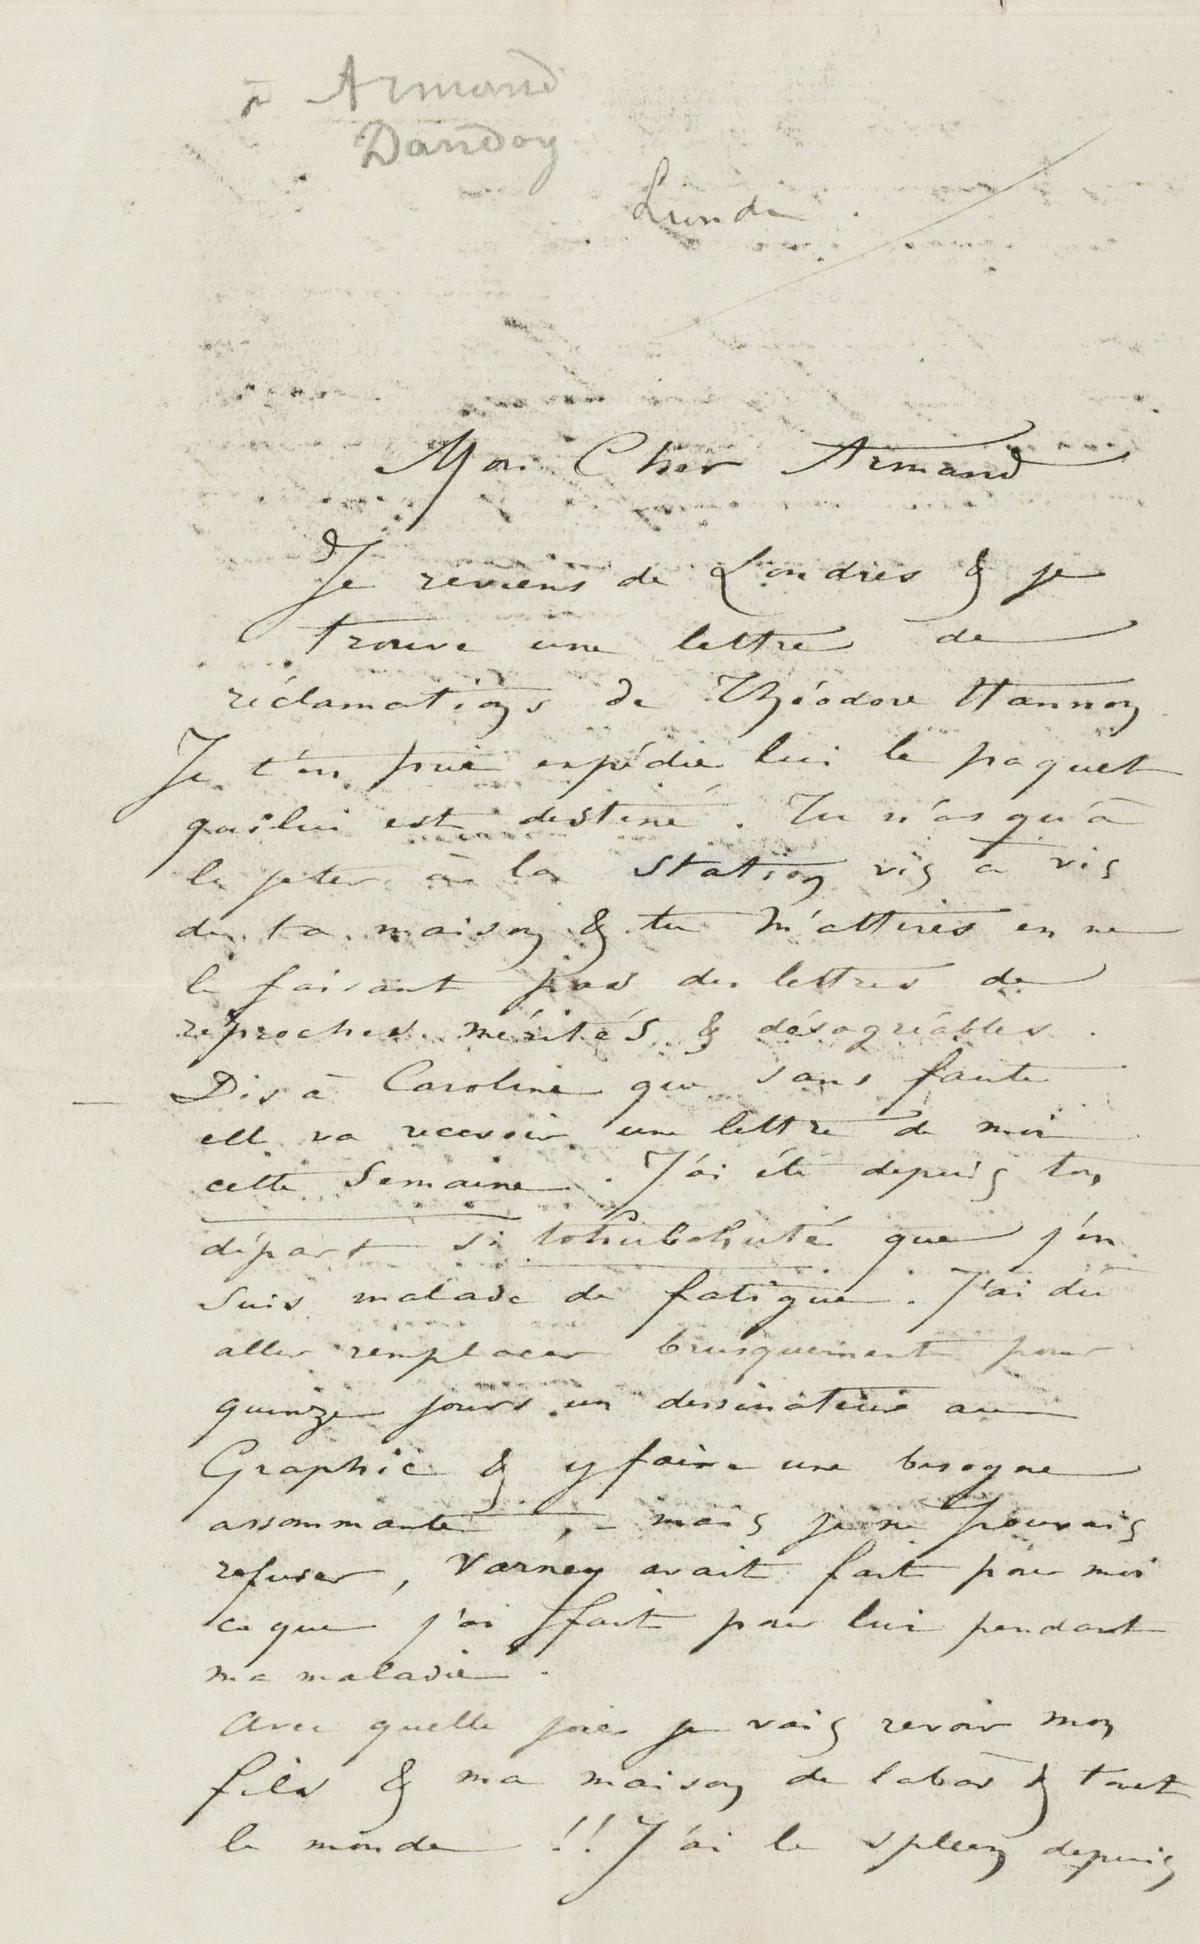 à Armand
Dandoy
Lundi.
Mon Cher Armand
Je reviens de Londres & je
trouve une lettre de
réclamations de Théodore Hannon
Je t'en prie expédie lui le paquet
qui lui est destiné. Tu n'as qu'à
le jeter à la station vis à vis
de ta maison & tu m'attires en ne
le faisant pas des lettres de
reproches mérités & désagréables.
Dis à Caroline que sans faute
elle va recevoir une lettre de moi
cette semaine. J'ai été depuis ton
départ si tohubohuté que j'en
suis malade de fatigue. J'ai dû
aller remplacer brusquement pour
quinze jours un dessinateur au
Graphic & y faire une besogne
assommante, - mais je ne pouvais
refuser, Varney avait fait pour moi
ce que j'ai fait pour lui pendant
ma maladie.
Avec quelle joie je vais revoir mon
fils & ma maison de labas & tout
le monde !! J'ai le spleen depuis